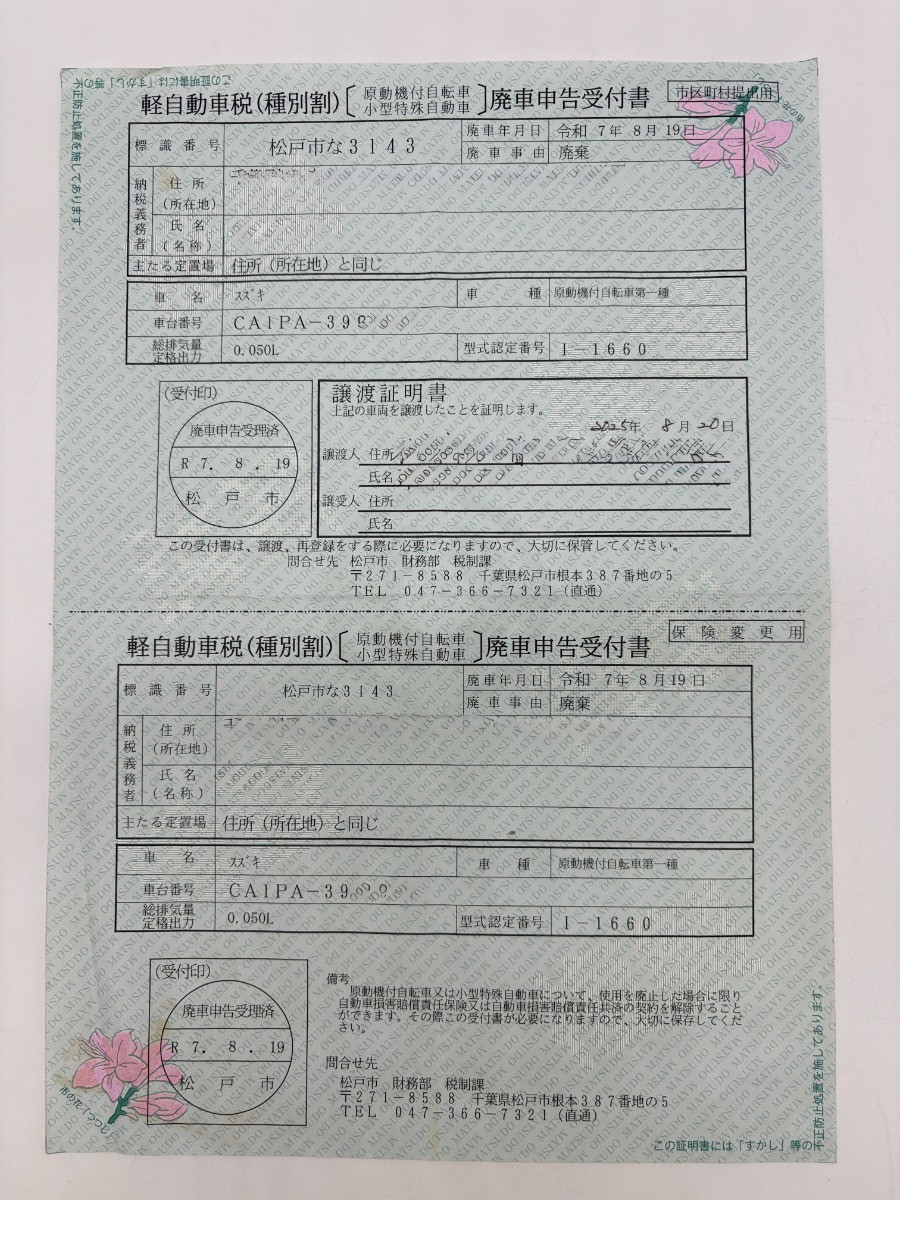 この証明書には「すかし」等の
不正防止処置を施してあります。
軽自動車税(種別割) 原動機付自転車 小型特殊自動車 廃車申告受付書
市区町村提出用
標識番号 松戸市な3143
廃車年月日 令和 7年 8月19日
廃車事由 廃棄
納税義務者
住所
(所在地)
氏名
(名称)
主たる定置場 住所(所在地)と同じ
車名 スズキ
車種 原動機付自転車第一種
車台番号 CA1PA-39
総排気量
定格出力 0.050L
型式認定番号 I-1660
(受付印)
廃車申告受理済
R 7. 8 . 19
松戸市
譲渡証明書
上記の車両を譲渡したことを証明します。
2025年 8月20日
譲渡人 住所
氏名
譲受人 住所
氏名
この受付書は、譲渡、再登録をする際に必要になりますので、大切に保管してください。
問合せ先 松戸市 財務部 税制課
〒271-8588 千葉県松戸市根本387番地の5
TEL 047-366-7321(直通)
軽自動車税(種別割) 原動機付自転車 小型特殊自動車 廃車申告受付書
保険変更用
標識番号 松戸市な3143
廃車年月日 令和 7年 8月19日
廃車事由 廃棄
納税義務者
住所
(所在地)
氏名
(名称)
主たる定置場 住所(所在地)と同じ
車名 スズキ
車種 原動機付自転車第一種
車台番号 CA1PA-39
総排気量
定格出力 0.050L
型式認定番号 I-1660
(受付印)
廃車申告受理済
R 7. 8 . 19
松戸市
備考
原動機付自転車又は小型特殊自動車について、使用を廃止した場合に限り
自動車損害賠償責任保険又は自動車損害賠償責任共済の契約を解除すること
ができます。その際この受付書が必要になりますので、大切に保存してくだ
さい。
問合せ先
松戸市 財務部 税制課
〒271-8588 千葉県松戸市根本387番地の5
TEL 047-366-7321(直通)
市の花「つつじ」
この証明書には「すかし」等の
不正防止処置を施してあります。